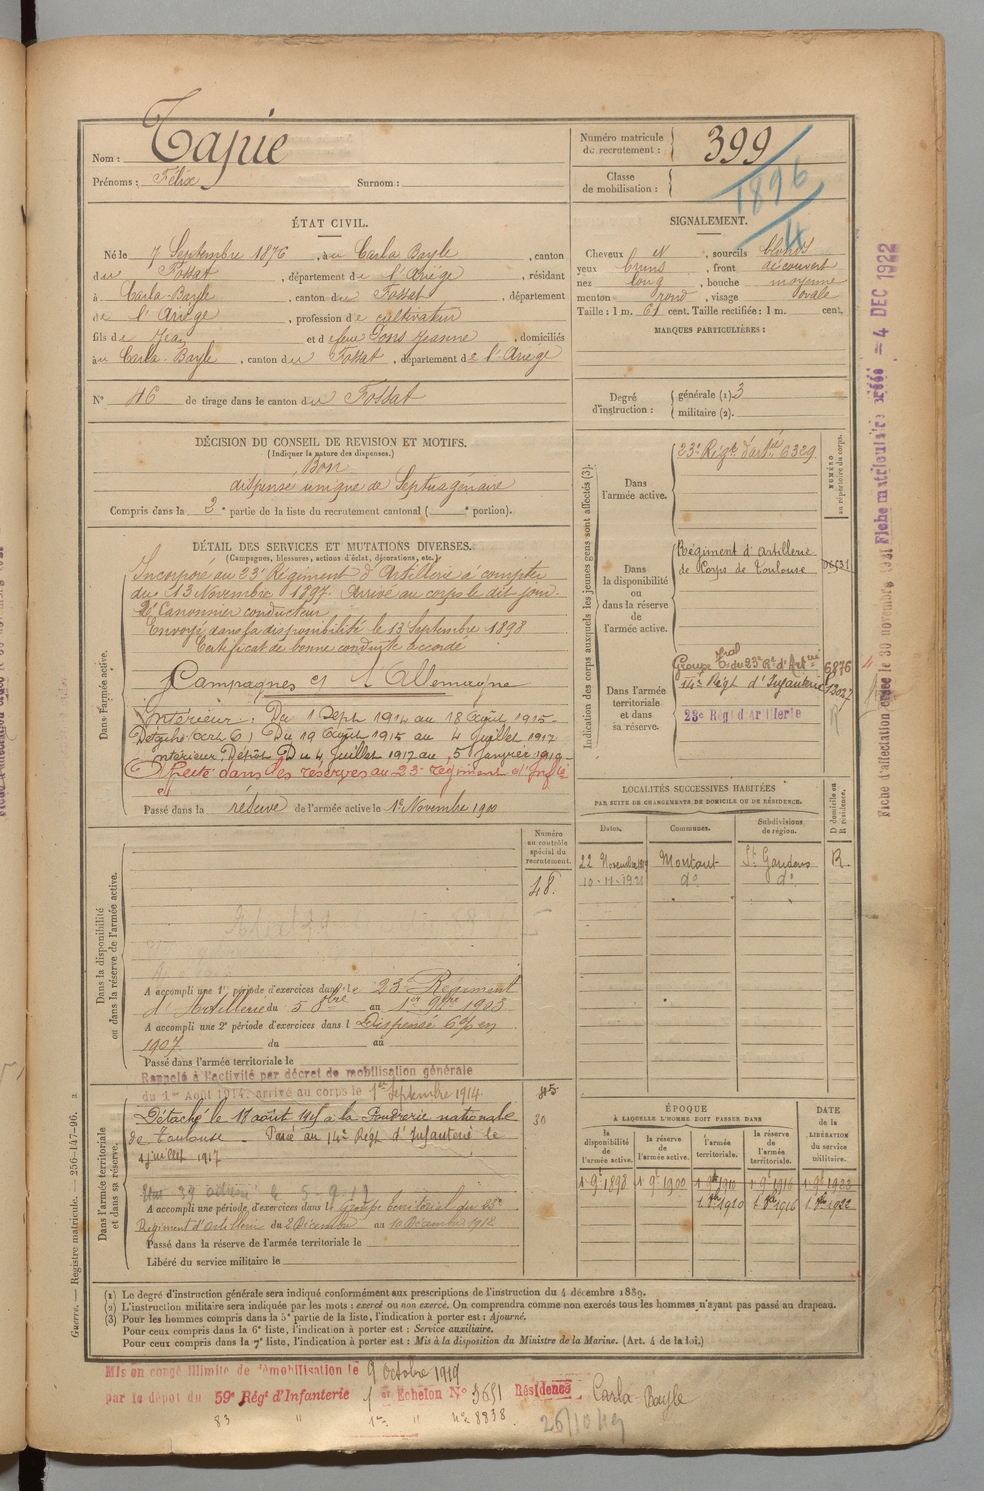 Nom : Tapie
Prénoms : Félix Surnom :
Numéro matricule de recrutement : 399
Classe de mobilisation : 1896
4
ÉTAT CIVIL.
Né le 7 Septembre 1876, à Carla Bayle, canton
du Fossat, département de l'Ariège, résidant
à Carla-Bayle, canton du Fossat, département
de l'Ariège, profession de cultivateur
fils de Jean et de feue Pons Jeanne, domiciliés
à Carla-Bayle, canton du Fossat, département de l'Ariège
N° 46 de tirage dans le canton du Fossat
SIGNALEMENT.
Cheveux et, sourcils blonds
yeux bruns, front découvert
nez long, bouche moyenne
menton rond, visage ovale
Taille : 1 m. 61 cent. Taille rectifiée : 1 m. cent.
MARQUES PARTICULIÈRES :
Degré d'instruction : générale (1) 3
militaire (2).
DÉCISION DU CONSEIL DE REVISION ET MOTIFS.
(Indiquer la nature des dispenses.)
Bon
dispensé unique de Septuagénaire
Compris dans la 2e partie de la liste du recrutement cantonal ( e portion).
DÉTAIL DES SERVICES ET MUTATIONS DIVERSES.
(Campagnes, blessures, actions d'éclat, décorations, etc.)
Dans l'armée active.
Incorporé au 23e Régiment d'Artillerie à compter
du 13 Novembre 1897. Arrivé au corps le dit jour.
2e Canonnier conducteur
Envoyé dans la disponibilité le 13 Septembre 1898
Certificat de bonne conduite accordé
Campagnes c/ l'Allemagne
Intérieur : Du 1 Sept 1914 au 18 Août 1915
Du 19 Août 1915 au 4 Juillet 1917
Intérieur Dépôt Du 4 Juillet 1917 au 5 Janvier 1919
Affecté dans les réserves au 23e régiment d'
Passé dans la réserve de l'armée active le 1er Novembre 1900
Indication des corps auxquels les jeunes gens sont affectés (3).
NUMÉRO au répertoire du corps.
Dans l'armée active.
23e Régt d'artie 6329
Dans la disponibilité ou dans la réserve de l'armée active.
Régiment d'Artillerie
de Corps de Toulouse
Dans l'armée territoriale et dans sa réserve.
Groupe du 23e Rt d'Artie 6876
14e Régt d'Infanterie 13027
23e Régt d'Artillerie
LOCALITÉS SUCCESSIVES HABITÉES
PAR SUITE DE CHANGEMENTS DE DOMICILE OU DE RÉSIDENCE.
Dates. Communes. Subdivisions de région. D domicile ou R résidence.
22 Novembre Montaut St Gaudens R
10-11-1921 do do
Numéro au contrôle spécial du recrutement.
48.
Dans la disponibilité ou dans la réserve de l'armée active.
A accompli une 1re période d'exercices dans le 23e Régiment
d'Artillerie du 5 8bre au 1er 9bre 1903
A accompli une 2e période d'exercices dans l Dispensé
1907 du au
Passé dans l'armée territoriale le
Rappelé à l'activité par décret de mobilisation générale
du 1er Août 1914, arrivé au corps le 1er Septembre 1914
Dans l'armée territoriale et dans sa réserve.
Détaché le 18 août 1915 à la Poudrerie nationale
de Toulouse. Passé au 14e Régt d'Infanterie le
4 juillet 1917
A accompli une période d'exercices dans le Groupe territorial du 23e
Régiment d'Artillerie du 2 Décembre au 10 Décembre 1912
Passé dans la réserve de l'armée territoriale le
Libéré du service militaire le
ÉPOQUE À LAQUELLE L'HOMME DOIT PASSER DANS
DATE de la LIBÉRATION du service militaire.
la disponibilité de l'armée active. la réserve de l'armée active. l'armée territoriale. la réserve de l'armée territoriale.
1er 9bre 1898 1er 9bre 1900 1er 9bre 1910 1er 9bre 1916 1er 9bre 1922
1er 8bre 1910 1er 8bre 1916 1er 8bre 1922
(1) Le degré d'instruction générale sera indiqué conformément aux prescriptions de l'instruction du 4 décembre 1889.
(2) L'instruction militaire sera indiquée par les mots : exercé ou non exercé. On comprendra comme non exercés tous les hommes n'ayant pas passé au drapeau.
(3) Pour les hommes compris dans la 5e partie de la liste, l'indication à porter est : Ajourné.
Pour ceux compris dans la 6e liste, l'indication à porter est : Service auxiliaire.
Pour ceux compris dans la 7e liste, l'indication à porter est : Mis à la disposition du Ministre de la Marine. (Art. 4 de la loi.)
Mis en congé illimité de démobilisation le 9 octobre 1919
par le dépôt du 59e Régt d'Infanterie Échelon N° 3651 Résidence Carla-Bayle
83 " 1er " n° 8838. 26/10/19
Guerre. — Registre matricule. — 256-147-96.
Fiche d'affectation créée le 30 novembre 1931 Fiche matriculaire 4 DEC 1922